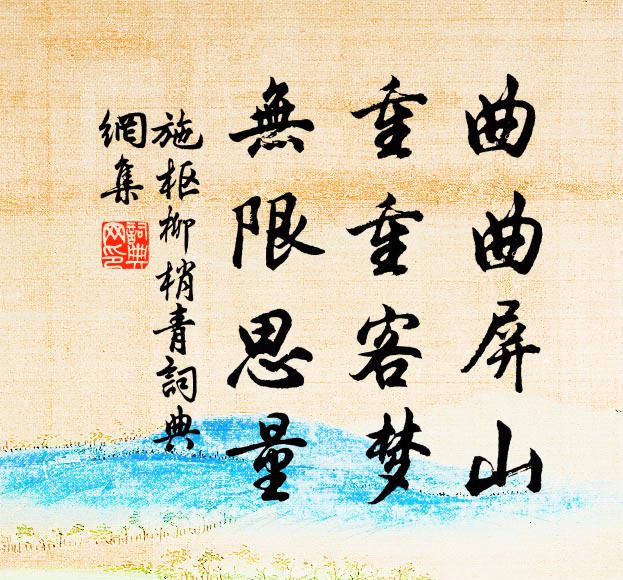 曲曲屏山
重重客梦
無限思量
施枢柳梢青詞典
網集
詞典
网印